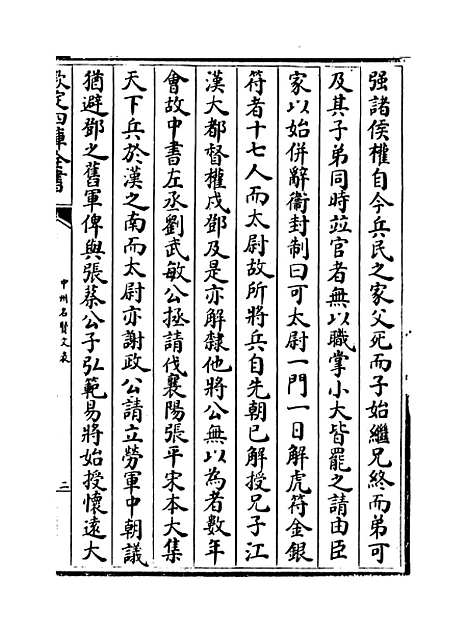 强諸侯權自今兵民之家父死而子始繼兄終而弟可
及其子弟同時竝官者無以職掌小大皆罷之請由臣
家以始併辭衞封制曰可太尉一門一日解虎符金銀
符者十七人而太尉故所將兵自先朝已解授兄子江
漢大都督權戍鄧及是亦解隸他將公無以為者數年
會故中書左丞劉武敏公拯請伐襄陽張平宋本大集
天下兵於漢之南而太尉亦謝政公請立勞軍中朝議
猶避鄧之舊軍俾與張蔡公子弘範易將始授懷遠大
欽定四庫全書
中州名賢文表
三